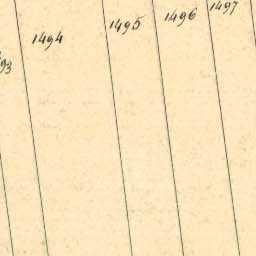 1494
1495
1496
1497